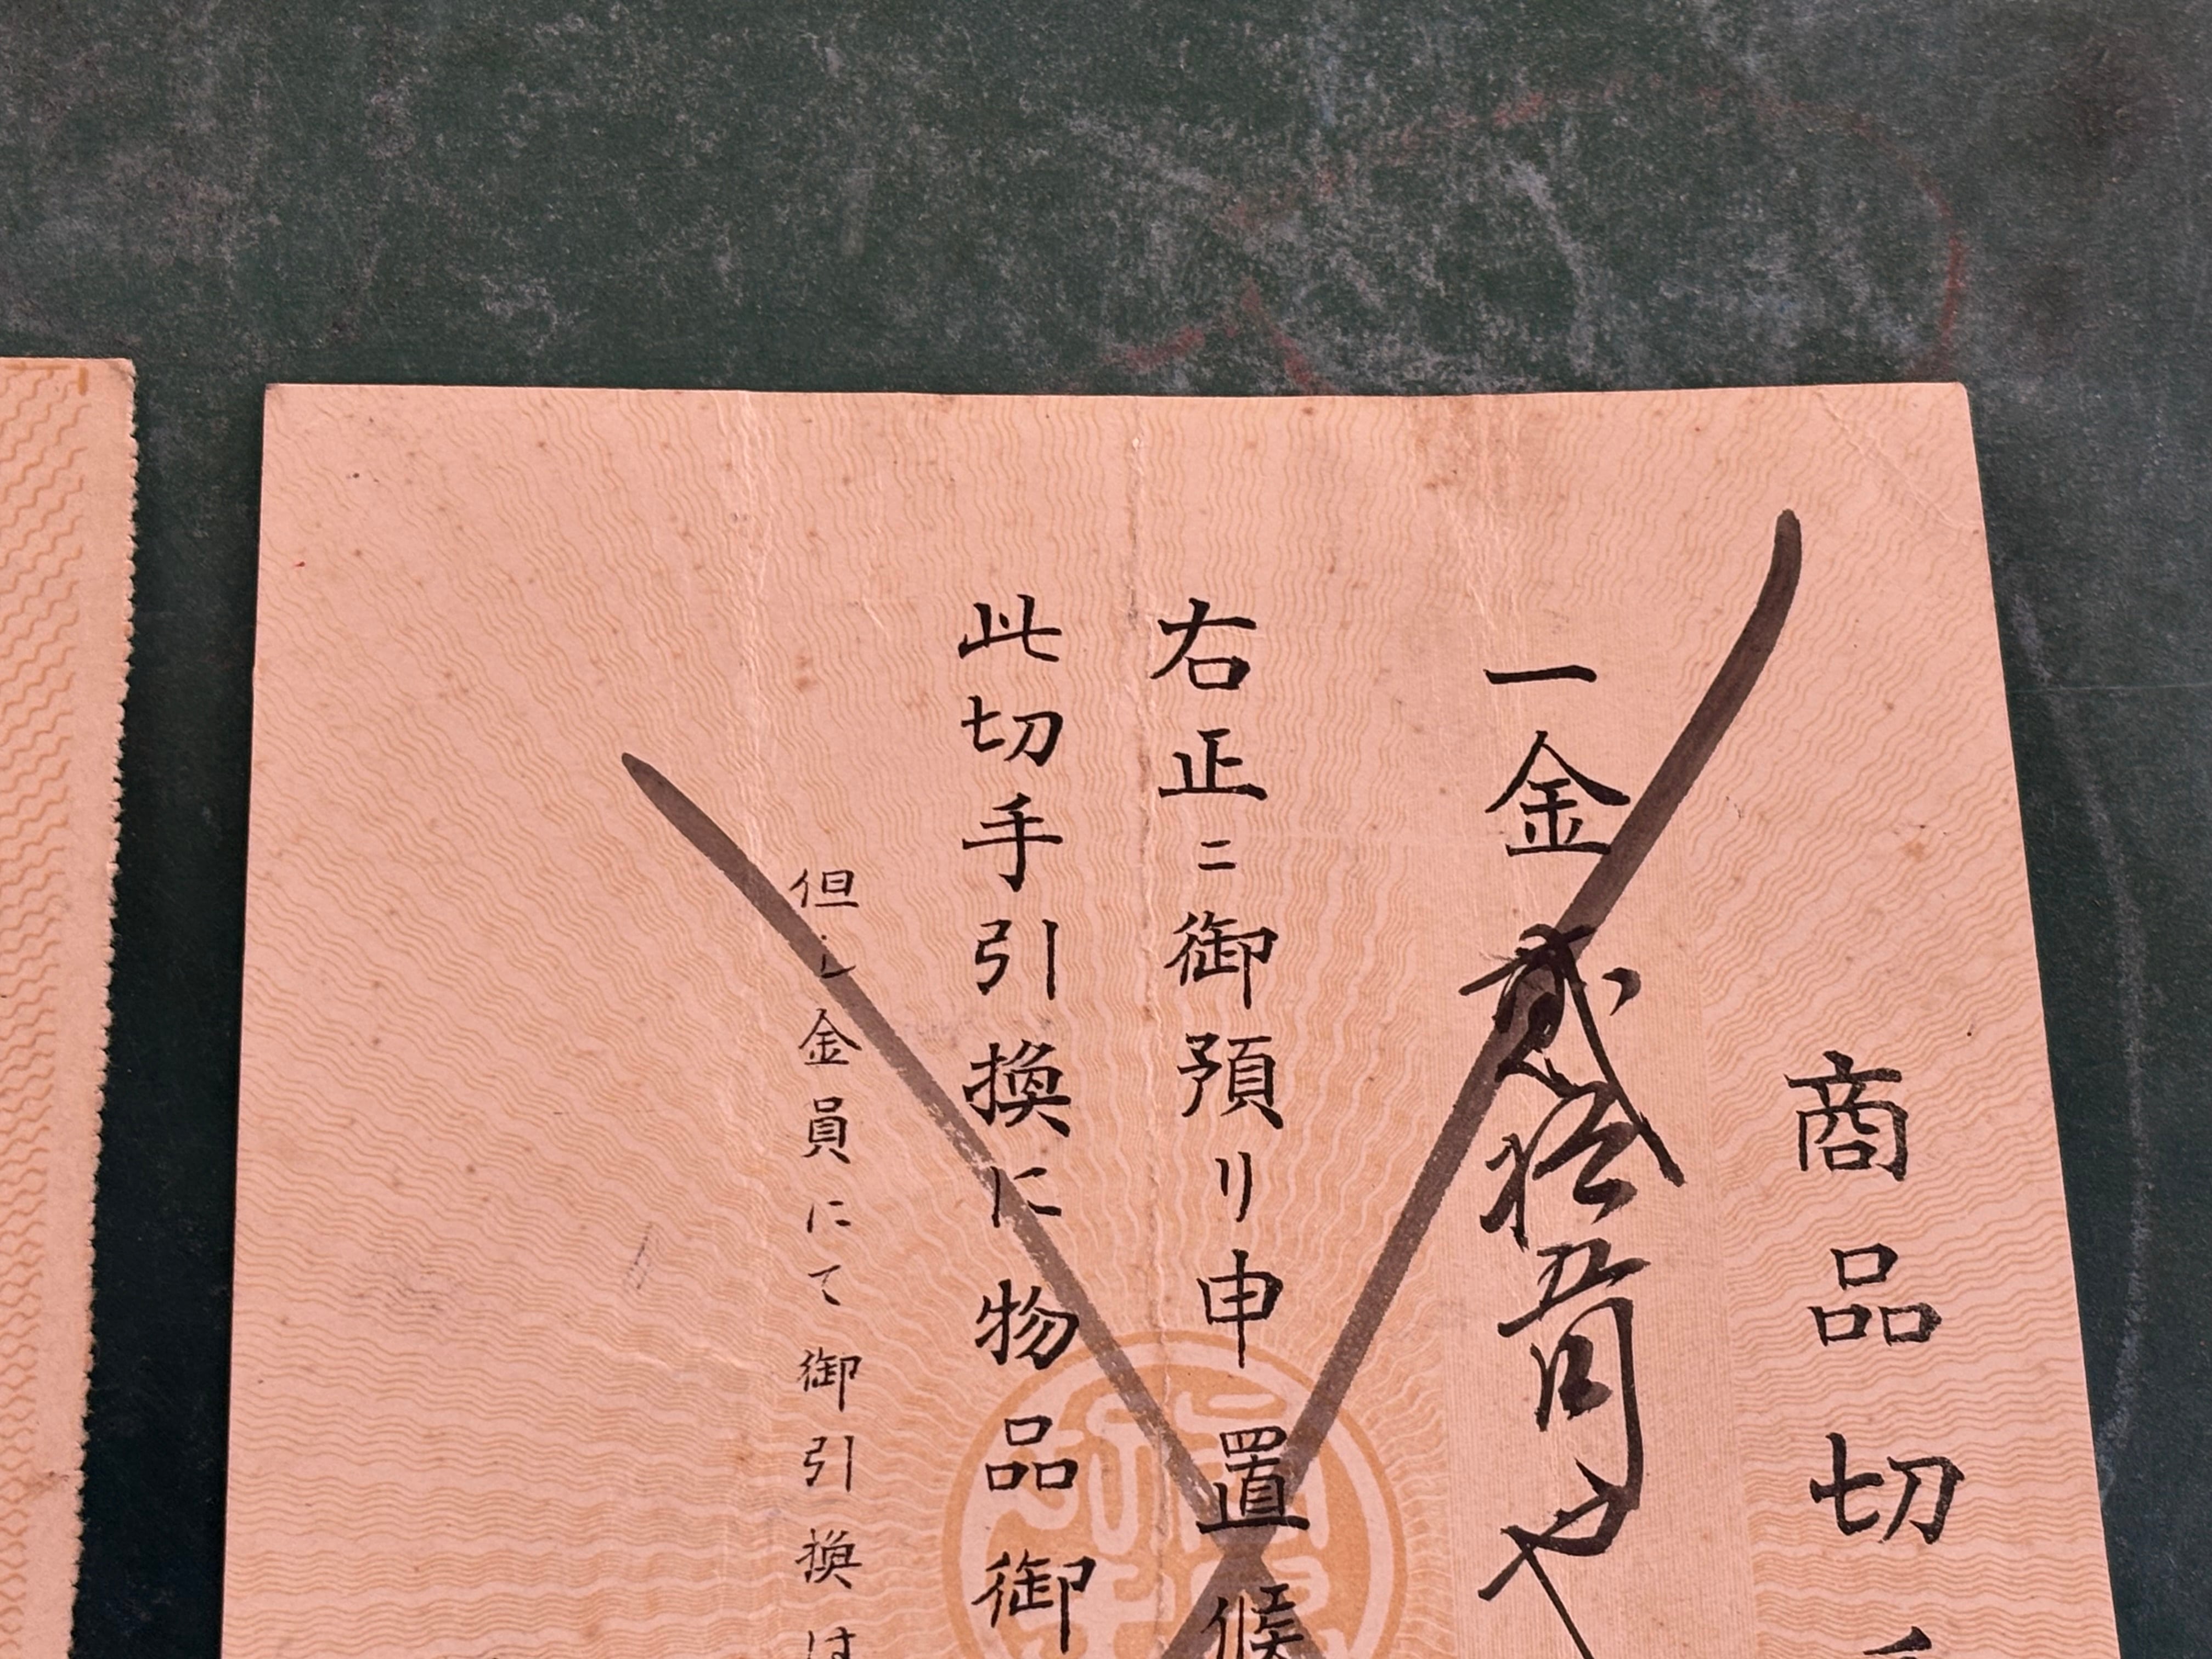 商品切手
一金貳拾五円也
右正ニ御預リ申置候
此切手引換に物品御
但し金員にて御引換は